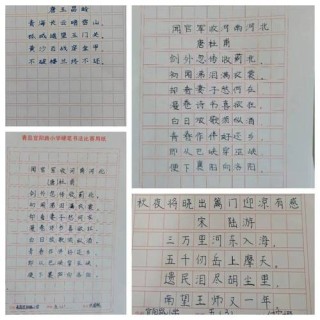 唐王昌龄
青海长云暗雪山，
孤城遥望玉门关。
黄沙百战穿金甲，
不破楼兰终不还。
闻官军收河南河北
唐杜甫
剑外忽传收蓟北，
初闻涕泪满衣裳。
却看妻子愁何在，
漫卷诗书喜欲狂。
白日放歌须纵酒，
青春作伴好还乡。
即从巴峡穿巫峡，
便下襄阳向洛阳。
小学硬笔书法比赛用纸
闻官军收河南河北
(唐)杜甫
剑外忽传收蓟北，
初闻涕泪满衣裳。
却看妻子愁何在，
漫卷诗书喜欲狂。
白日放歌须纵酒，
青春作伴好还乡。
即从巴峡穿巫峡，
便下襄阳向洛阳。
秋夜将晓出篱门迎凉有感
宋 陆游
三万里河东入海，
五千仞岳上摩天。
遗民泪尽胡尘里，
南望王师又一年